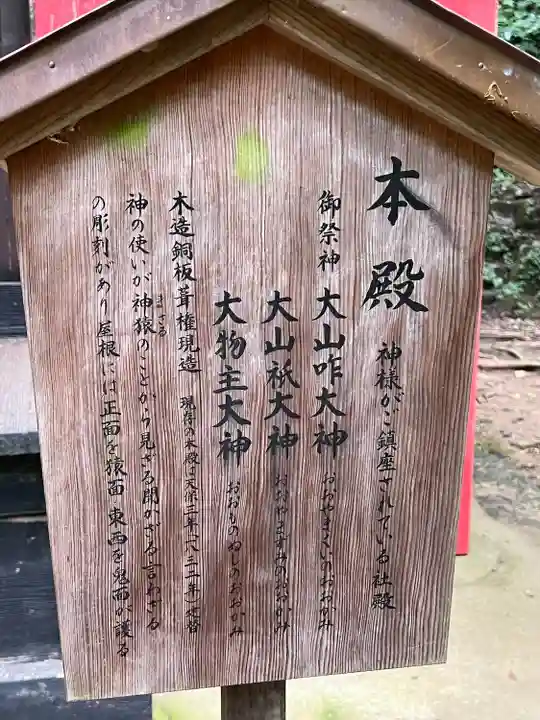 本殿 神様がご鎮座されている社殿
御祭神 大山咋大神 おおやまくいのおおかみ
大山祇大神 おおやまずみのおおかみ
大物主大神 おおものぬしのおおかみ
木造銅板葺権現造 現存の本殿は天保三年(一八三二年)改替
神の使いが神猿のことから見ざる聞かざる言わざる
まさる
の彫刻があり屋根には正面を猿面 東西を鬼面が護る